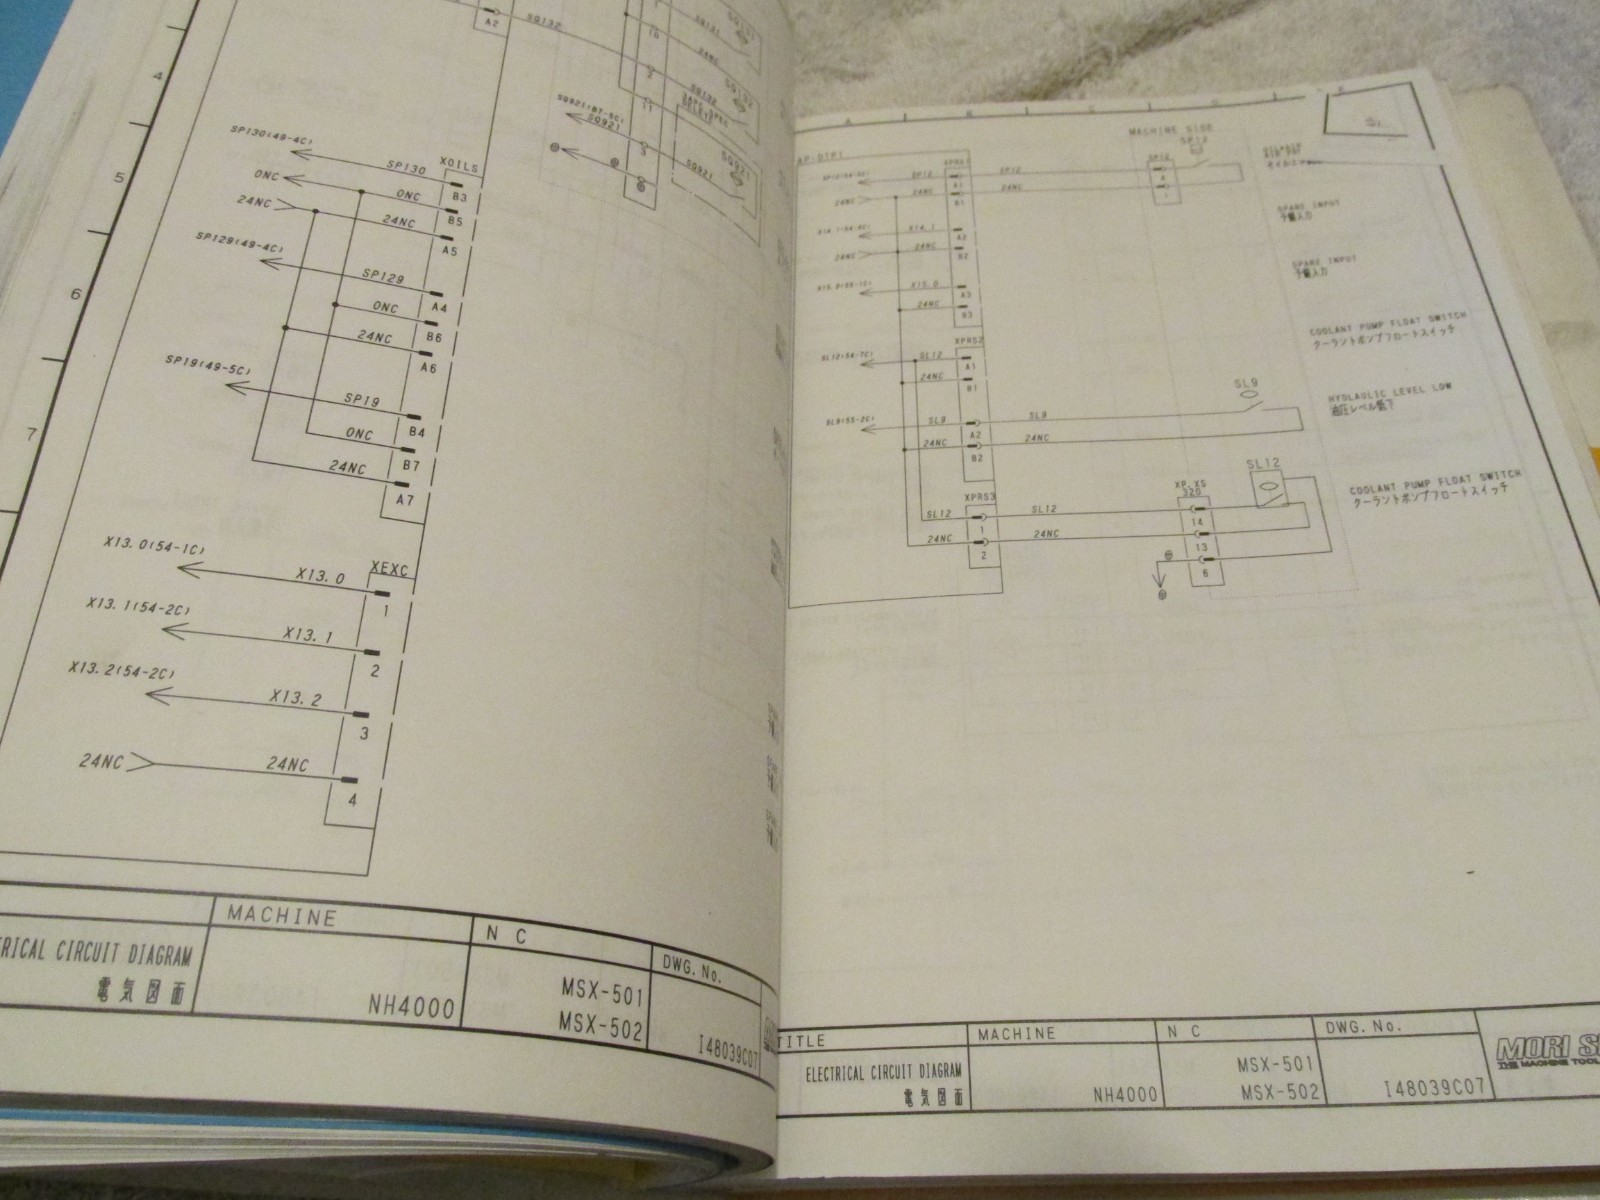 4
5
6
7
A2
SQ132
SQ131
SQ131
24NC
SQ132
SQ132
SQ921(B7-5C)
SQ921
SQ921
SQ921
SP130(49-4C)
SP130
XOILS
B3
0NC
0NC
B5
24NC
24NC
A5
SP129(49-4C)
SP129
A4
0NC
B6
24NC
A6
SP19(49-5C)
SP19
B4
0NC
B7
24NC
A7
X13.0(54-1C)
X13.0
XEXC
1
X13.1(54-2C)
X13.1
2
X13.2(54-2C)
X13.2
3
24NC
24NC
4
MACHINE
N C
DWG. No.
TRICAL CIRCUIT DIAGRAM
電気図面
NH4000
MSX-501
MSX-502
I48039C07
A
MACHINE SIDE
SP12
SP12
SP12
SP12
A1
24NC
24NC
24NC
B1
X14.1
A2
24NC
24NC
B2
X15.0
A3
24NC
B3
SPARE INPUT
予備入力
SPARE INPUT
予備入力
XPRS2
SL12(54-7C)
SL12
A1
24NC
B1
COOLANT PUMP FLOAT SWITCH
クーラントポンプフロートスイッチ
SL9(55-2C)
SL9
SL9
SL9
A2
24NC
24NC
B2
HYDLAULIC LEVEL LOW
油圧レベル低下
XPRS3
SL12
SL12
1
24NC
24NC
2
XP.XS
320
14
13
6
SL12
COOLANT PUMP FLOAT SWITCH
クーラントポンプフロートスイッチ
TITLE
MACHINE
N C
DWG. No.
ELECTRICAL CIRCUIT DIAGRAM
電気図面
NH4000
MSX-501
MSX-502
I48039C07
MORI S
THE MACHINE TOOL